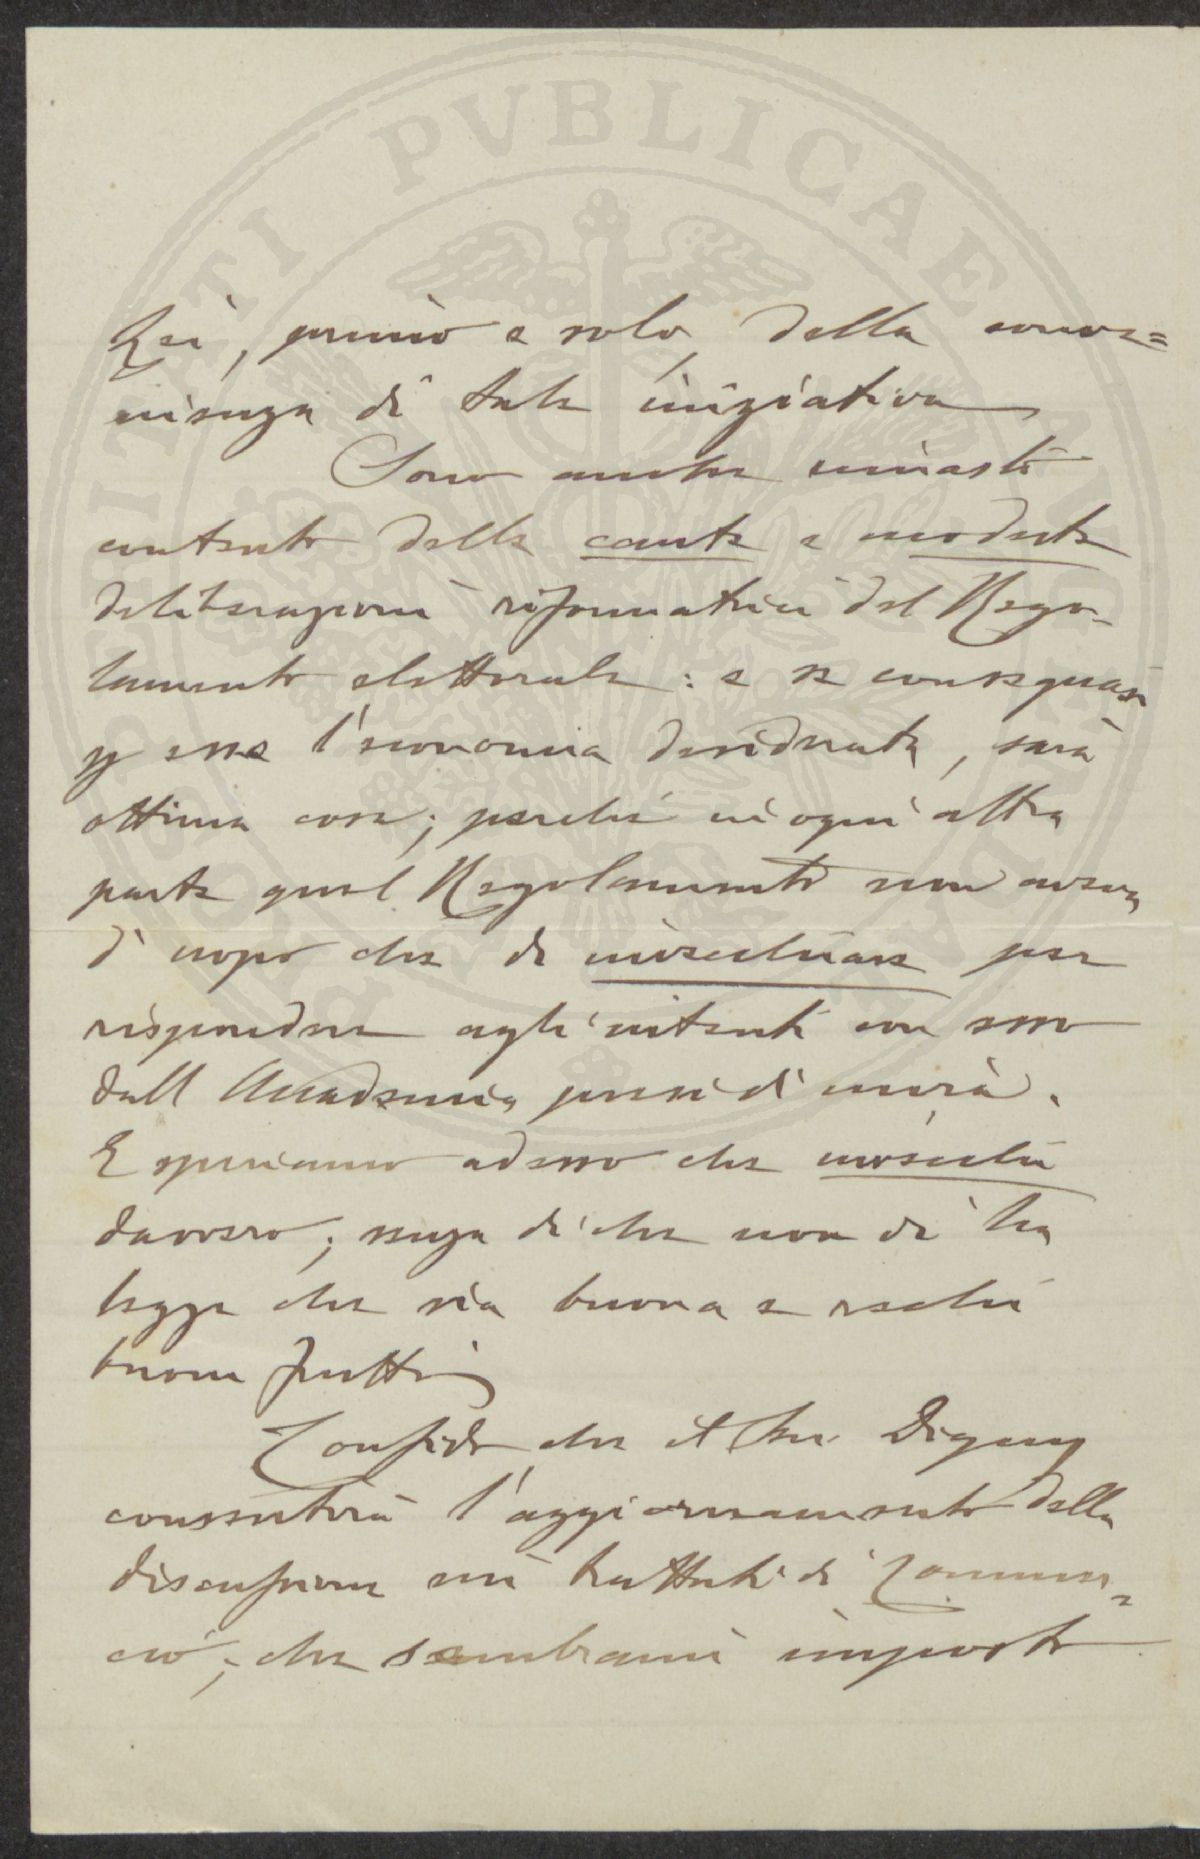 PVBLICAE
Lei, primo e solo, della conve=
nienza di tale iniziativa
Sono anche rimasto
contento delle caute e modeste
deliberazioni riformatrici del Rego-
lamento elettorale: e se conseguasi
p esse l'economia desiderata, sarà
ottima cosa; perchè in ogni altra
parte quel Regolamento non aveva
d'uopo che di invecchiare per
rispondere agli intenti con esso
dall'Accademia presi di mira.
E speriamo adesso che invecchi
davvero; senza di che non si ha
legge che sia buona e rechi
buoni frutti
Confido che il Sen. Digny
consentirà l'aggiornamento della
discussione sui trattati di Commer=
cio; che sembrami imposto